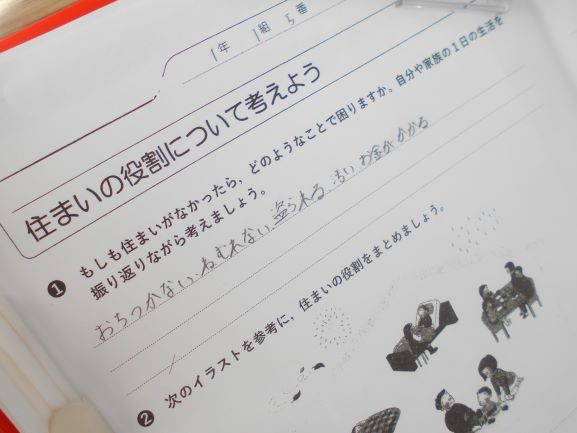 1年 1組 5番
住まいの役割について考えよう
❶ もしも住まいがなかったら，どのようなことで困りますか。自分や家族の1日の生活を
振り返りながら考えましょう。
おちつかない、ねむれない、盗られる、汚い、お金がかかる
❷ 次のイラストを参考に，住まいの役割をまとめましょう。